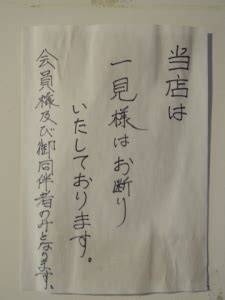 当店は
一見様はお断り
いたしております。
会員様及び御同伴者のみとなります。